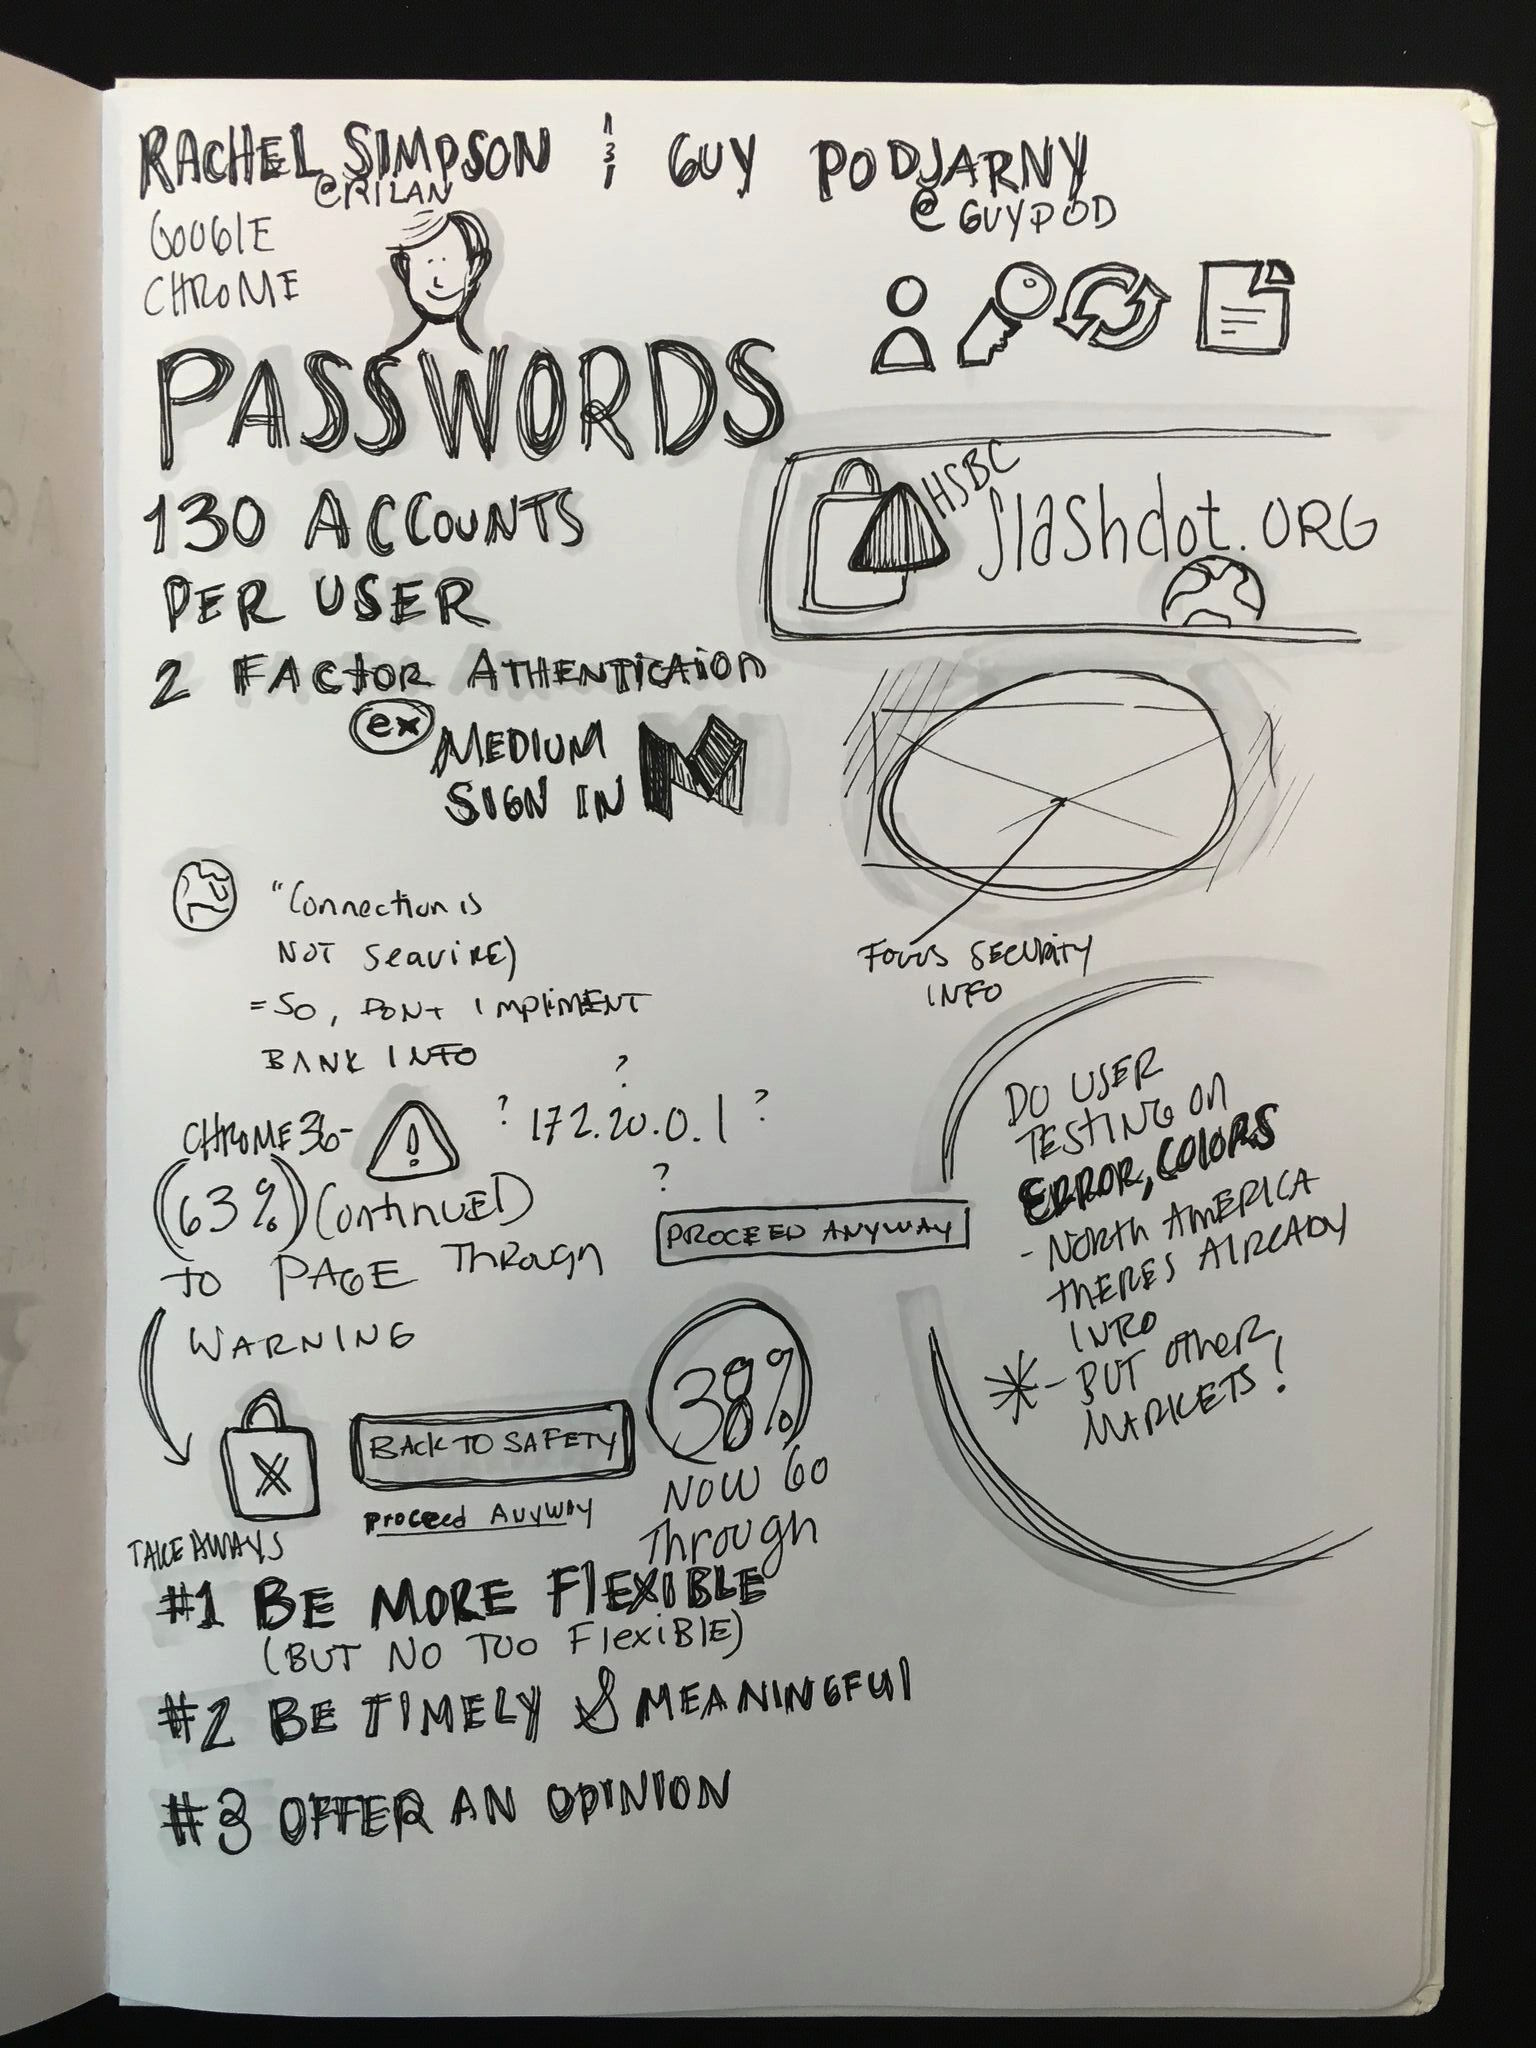 RACHEL SIMPSON & GUY PODJARNY
@RILAN
@GUYPOD
GOOGlE
CHROME
PASSWORDS
130 ACCOUNTS
PER USER
2 FACTOR ATHENTICAIION
ex MEDIUM
SIGN IN
HSBC
slashdot.ORG
FOCUS SECURITY
INFO
"Connection is
NOT Seauire)
= SO, DONT IMPlIMENT
BANK INFO
CHROME 36-
! ? 172.20.0.1 ?
?
?
63% CONTINUED
TO PAGE THROUGH
WARNING
PROCEED ANYWAY
DO USER
TESTING ON
ERROR, COLORS
- NORTH AMERICA
THERES AlREADY
INTRO
- BUT OTHER
MARKETS!
X
BACK TO SAFETY
PROCEED ANYWAY
38%
NOW GO
Through
TAKE AWAYS
#1 BE MORE FlEXIBLE
(BUT NO TOO FlexiBLE)
#2 BE TIMELY & MEANINGFUl
#3 OFFER AN OPINION